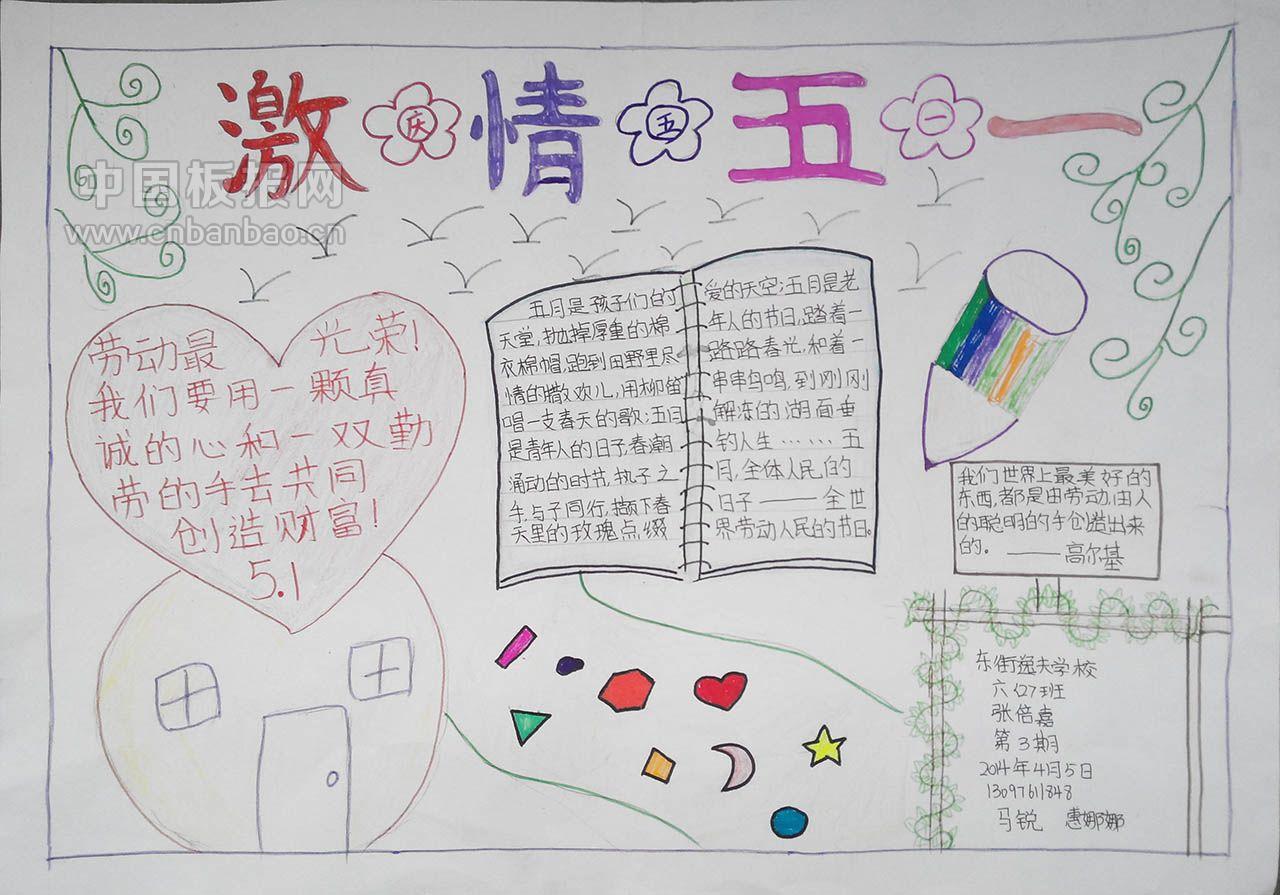 激 庆 情 五 五 一 一
中国板报网
www.cnbanbao.cn
劳动最 光荣!
我们要用一颗真
诚的心和一双勤
劳的手去共同
创造财富!
5.1
五月是孩子们的
天堂,抛掉厚重的棉
衣棉帽,跑到田野里尽
情的撒欢儿,用柳笛
唱一支春天的歌;五月
是青年人的日子,春潮
涌动的时节,执子之
手,与子同行,撷下春
天里的玫瑰点缀
爱的天空;五月是老
年人的节日,踏着一
路路春光,和着一
串串鸟鸣,到刚刚
解冻的湖面垂
钓人生……五
月,全体人民的
日子——全世
界劳动人民的节日。
我们世界上最美好的
东西,都是由劳动,由人
的聪明的手创造出来
的。——高尔基
东街逸夫学校
六(2)班
张倍嘉
第3期
2014年4月5日
13097611848
马锐 惠娜娜